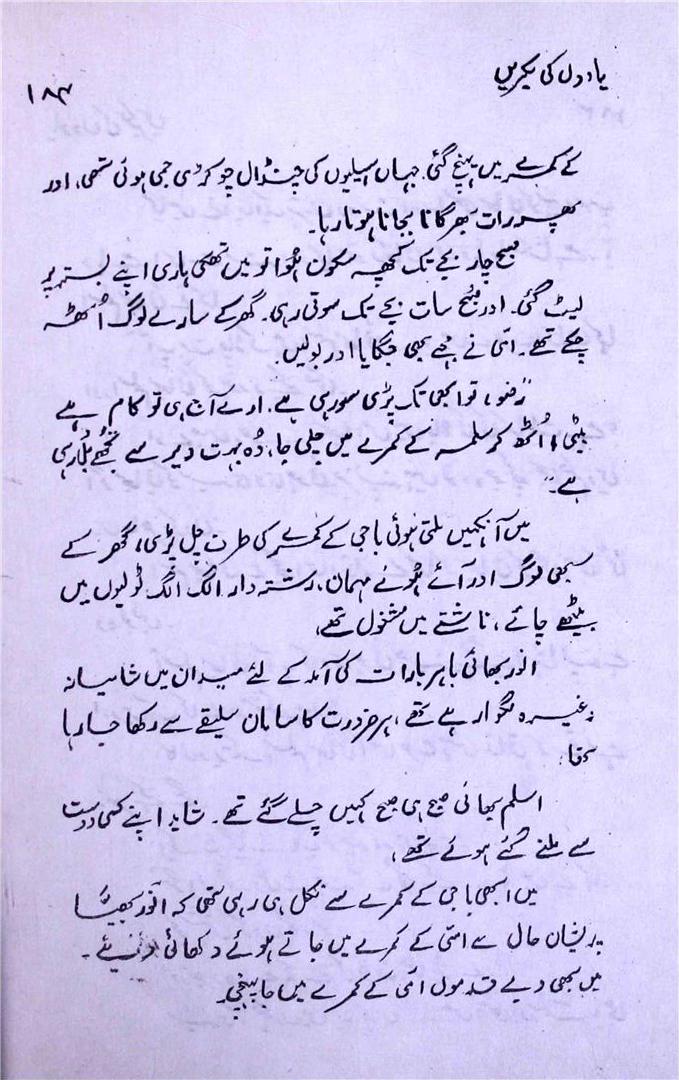 یادوں کی لکیریں
۱۸۳
کے کمرے میں پہنچ گئی۔ جہاں سہیلیوں کی چنڈال چوکڑی جمی ہوئی تھی، اور
پھر رات بھر گانا بجانا ہوتا رہا۔
صبح چار بجے تک کچھ سکون ہوا تو میں تھکی ہاری اپنے بستر پر
لیٹ گئی۔ اور صبح سات بجے تک سوتی رہی۔ گھر کے سارے لوگ اُٹھ
چکے تھے۔ امّی نے مجھے بھی جگایا اور بولیں
”رضو، تو ابھی تک پڑی سو رہی ہے۔ ارے آج ہی تو کام ہے
بیٹی، اُٹھ کر سلمہ کے کمرے میں چلی جا، وُہ بہت دیر سے تجھے بُلا رہی
ہے“
میں آنکھیں ملتی ہوئی باجی کے کمرے کی طرف چل پڑی، گھر کے
سبھی لوگ اور آئے ہوئے مہمان، رشتہ دار الگ الگ ٹولیوں میں
بیٹھے چائے، ناشتے میں مشغول تھے،
انور بھائی باہر بارات کی آمد کے لئے میدان میں شامیانہ
وغیرہ لگوا رہے تھے، ہر ضرورت کا سامان سلیقے سے رکھا جا رہا
تھا۔
اسلم بھائی صبح ہی صبح کہیں چلے گئے تھے۔ شاید اپنے کسی دوست
سے ملنے گئے ہوئے تھے،
میں ابھی باجی کے کمرے سے نکل ہی رہی تھی کہ انور بھیّا
پریشان حال سے امّی کے کمرے میں جاتے ہوئے دکھائی دیئے۔
میں بھی دبے قدموں امّی کے کمرے میں جا پہنچی۔